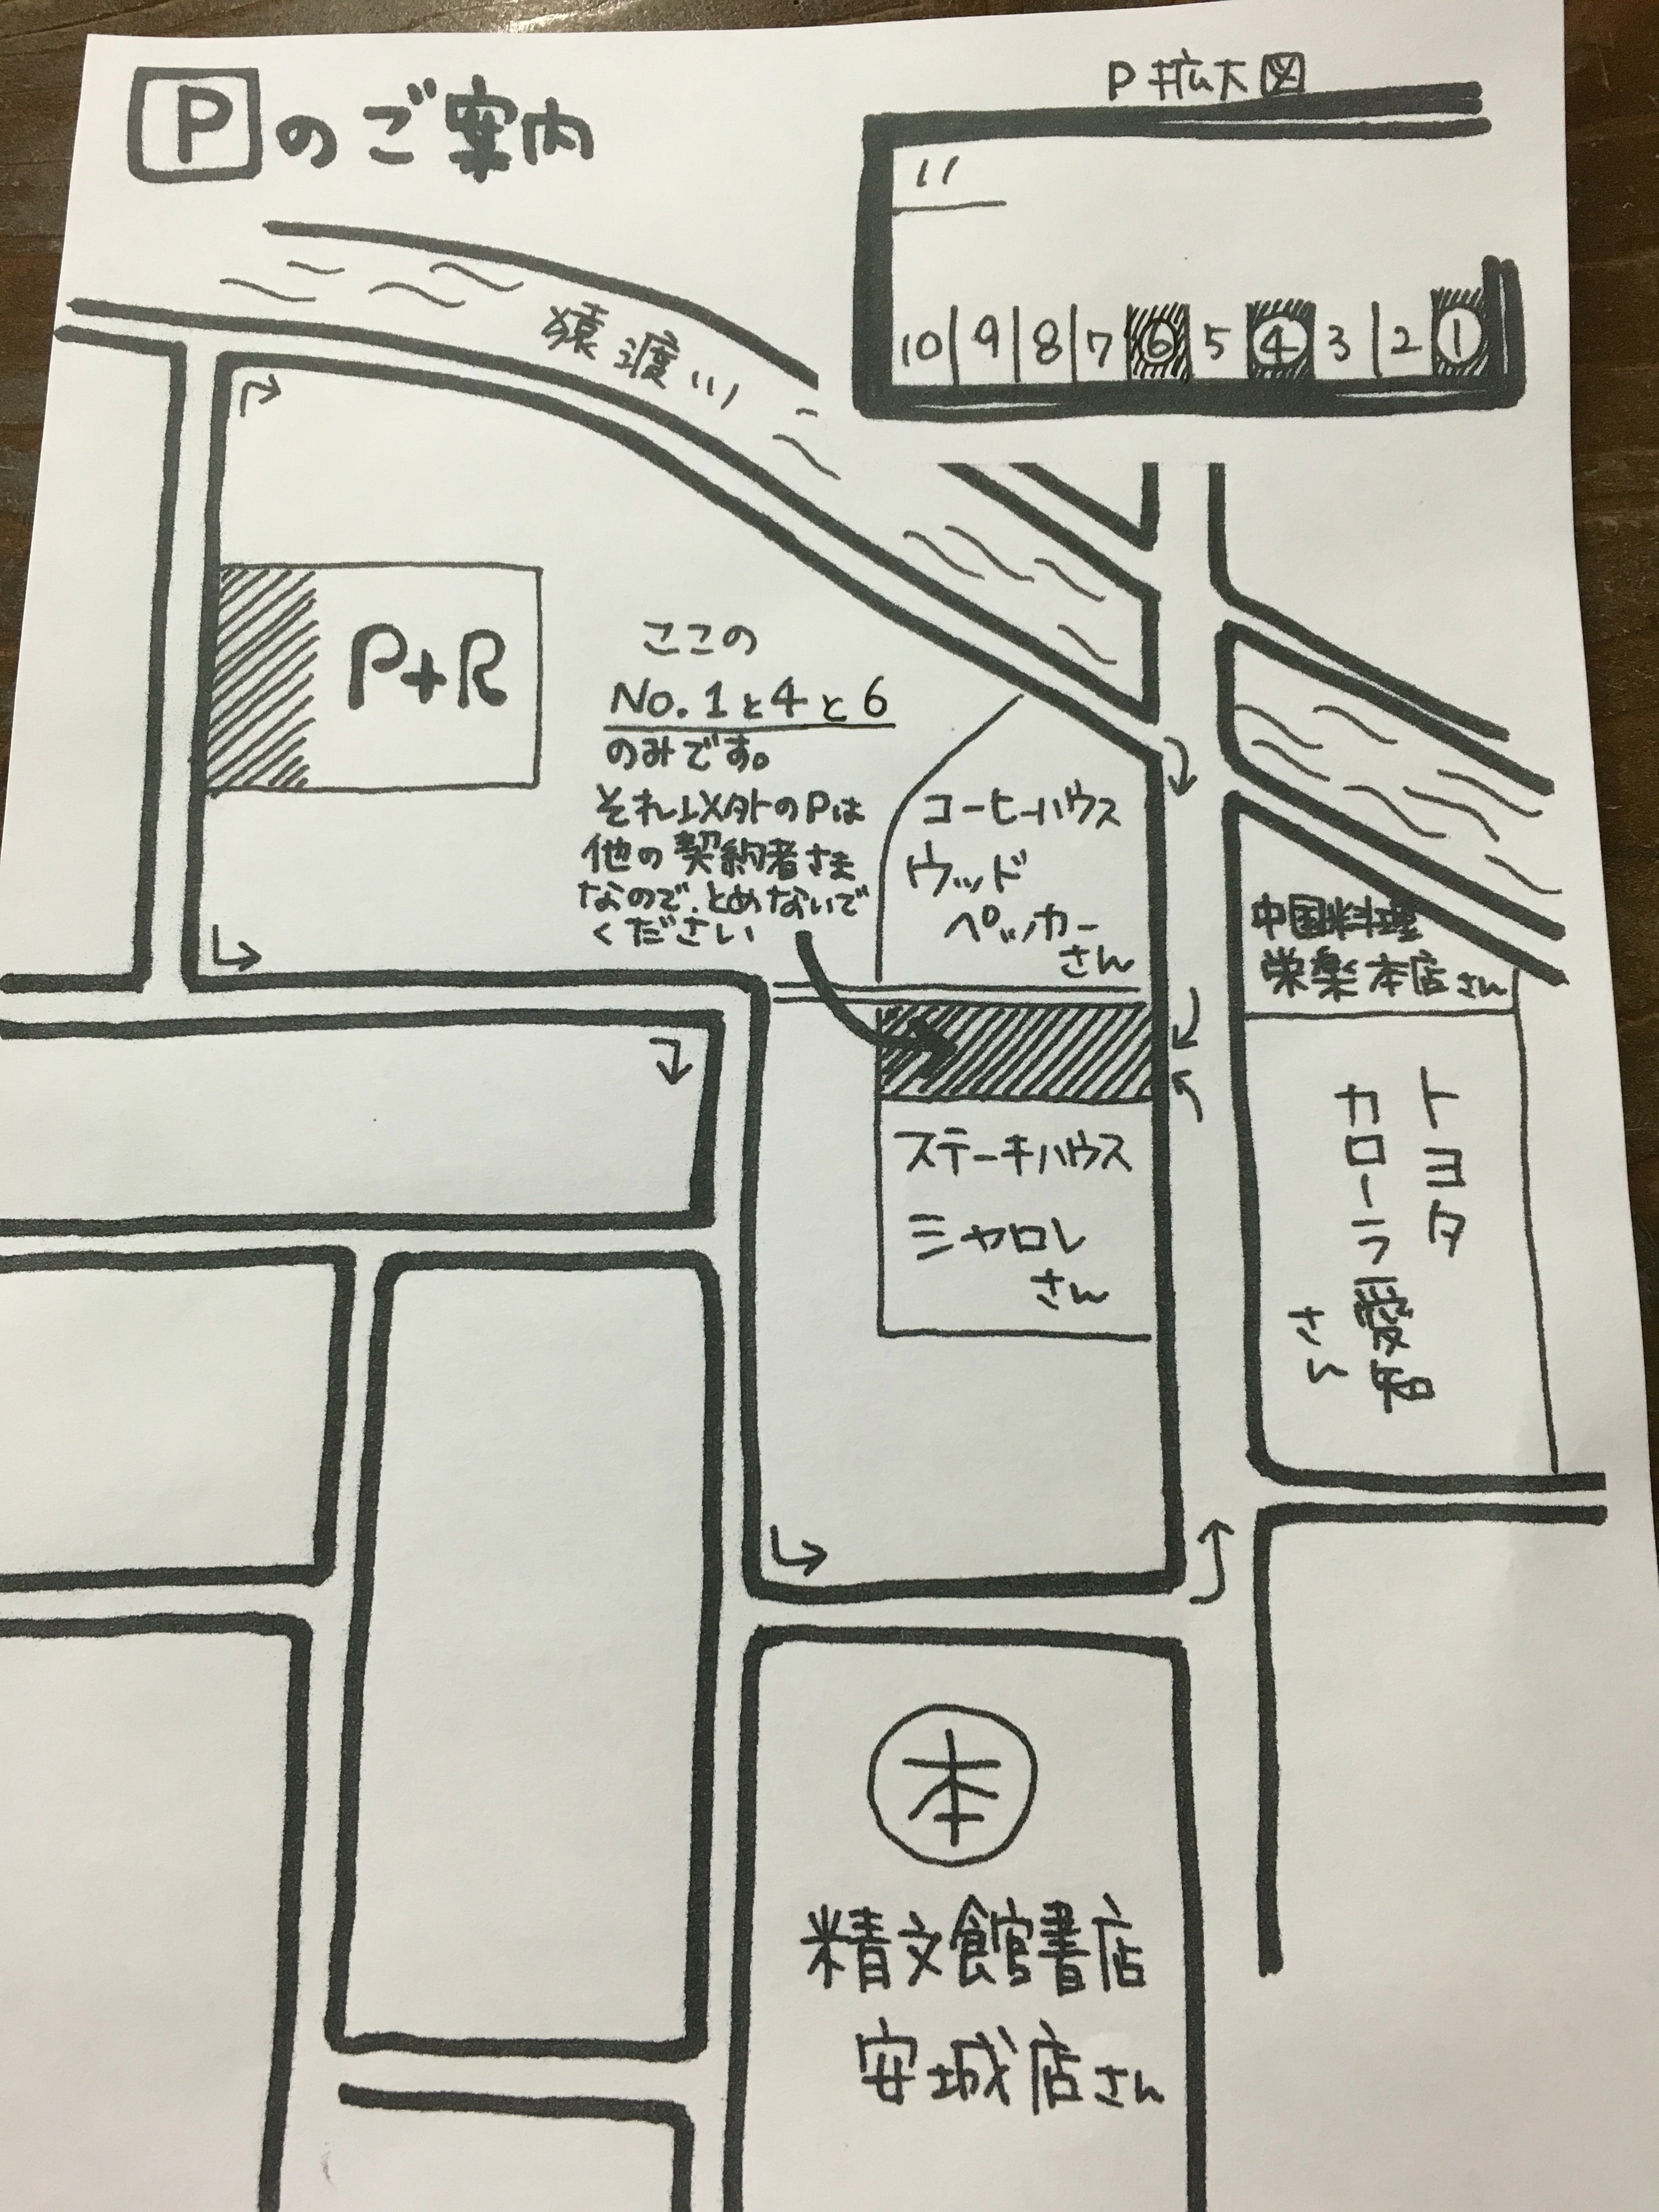 Pのご案内
P拡大図
11
10 9 8 7 ⑥ 5 ④ 3 2 ①
猿渡川
P+R
ここの
No.1と4と6
のみです。
それ以外のPは
他の契約者さま
なので、とめないで
ください
コーヒーハウス
ウッド
ペッカー
さん
中国料理
栄楽本店さん
ステーキハウス
シャロレ
さん
トヨタ
カローラ愛知
さん
本
精文館書店
安城店さん